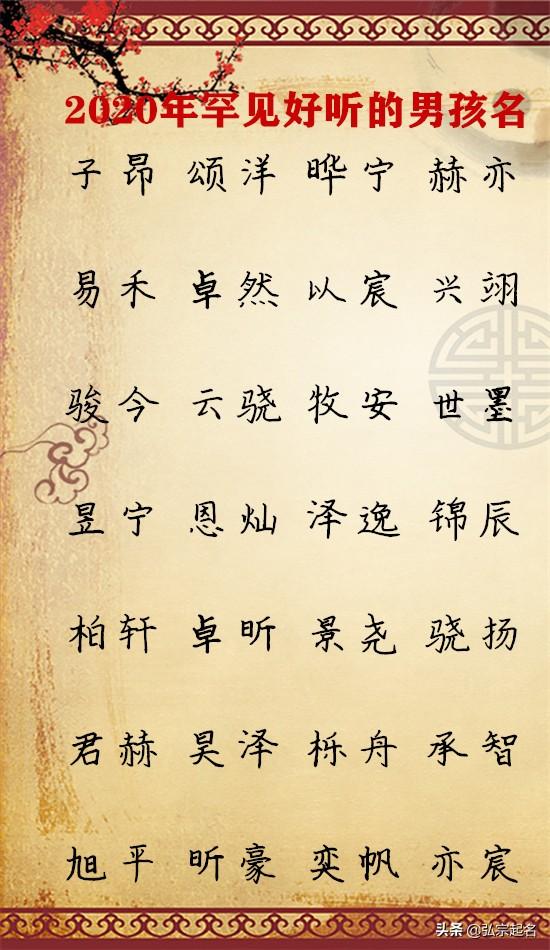 2020年罕见好听的男孩名
子昂 颂洋 晔宁 赫亦
易禾 卓然 以宸 兴翊
骏今 云骁 牧安 世墨
昱宁 恩灿 泽逸 锦辰
柏轩 卓昕 景尧 骁扬
君赫 昊泽 栎舟 承智
旭平 昕豪 奕帆 亦宸
头条 @弘宗起名